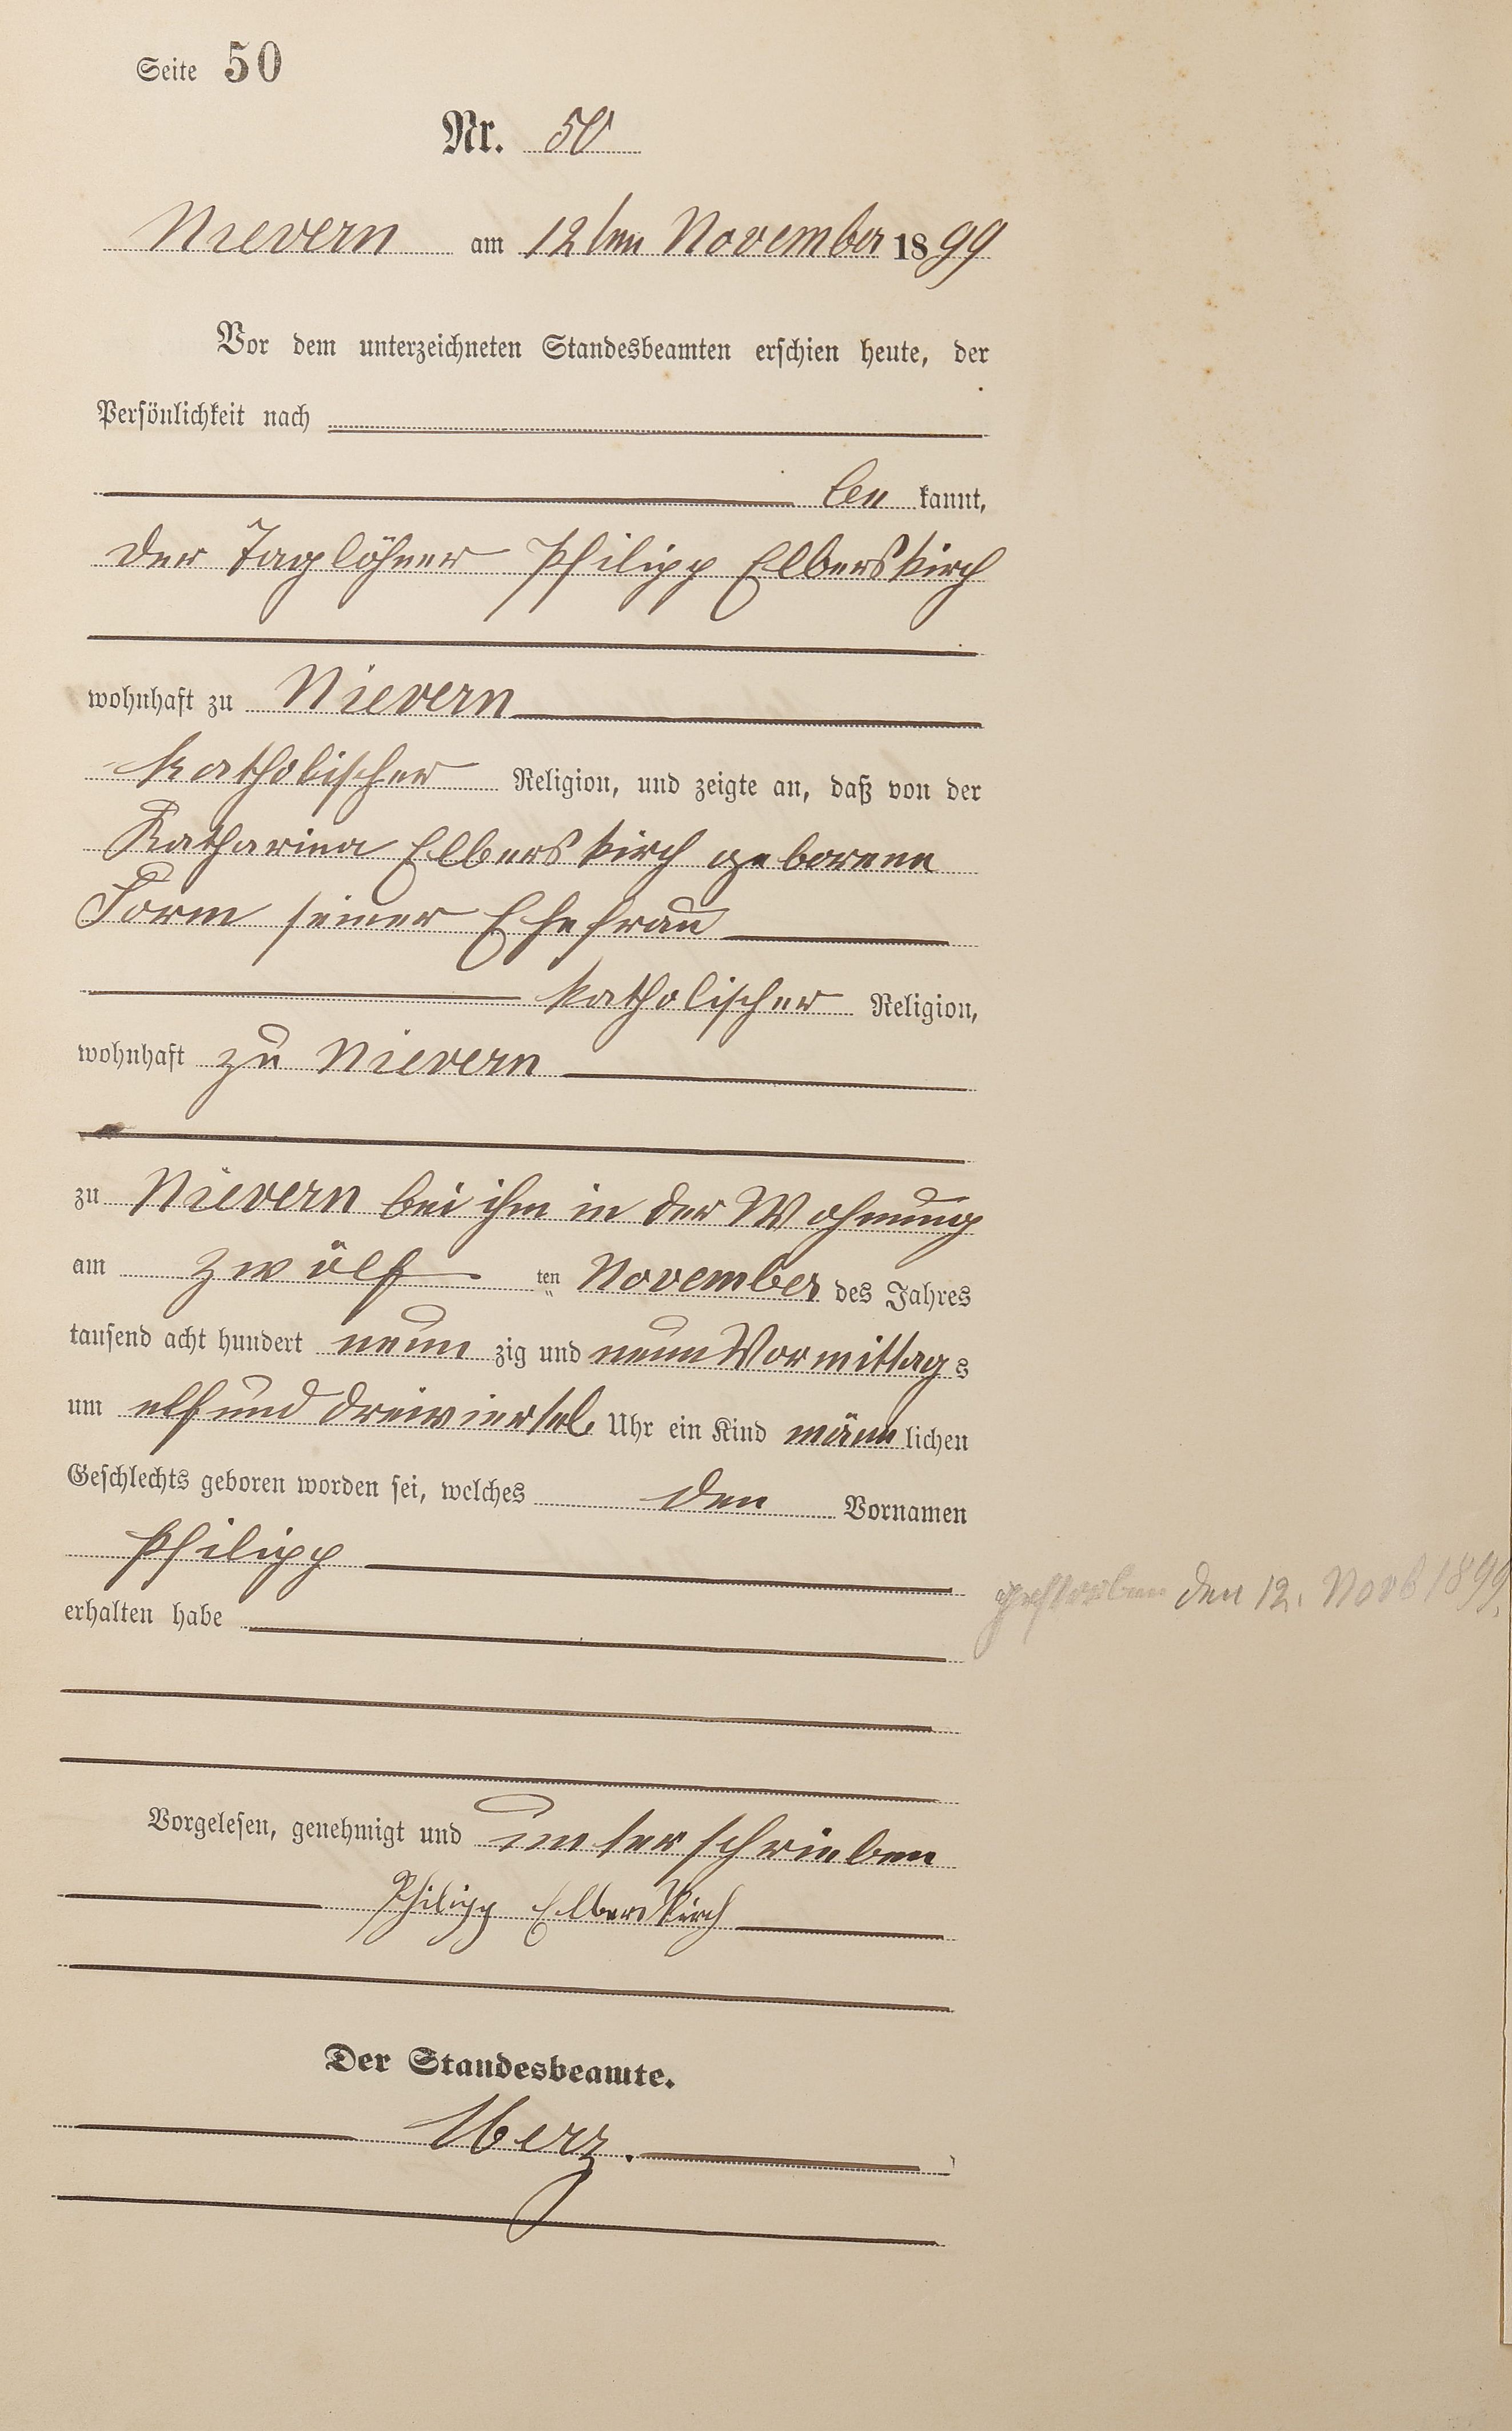 Seite 50
Nr. 50
Nievern am 12ten November 1899
Vor dem unterzeichneten Standesbeamten erschien heute, der
Persönlichkeit nach
be kannt,
der Taglöhner Philipp Elberskirch
wohnhaft zu Nievern
katholischer Religion, und zeigte an, daß von der
Katharina Elberskirch geborene
Form seiner Ehefrau
katholischer Religion,
wohnhaft zu Nievern
zu Nievern bei ihm in der Wohnung
am zwölf ten November des Jahres
tausend acht hundert neun zig und neun Vormittag s
um elf und dreiviertel Uhr ein Kind männ lichen
Geschlechts geboren worden sei, welches den Vornamen
Philipp
gestorben den 12. Novb 1899.
erhalten habe
Vorgelesen, genehmigt und unterschrieben
Philipp Elberskirch
Der Standesbeamte.